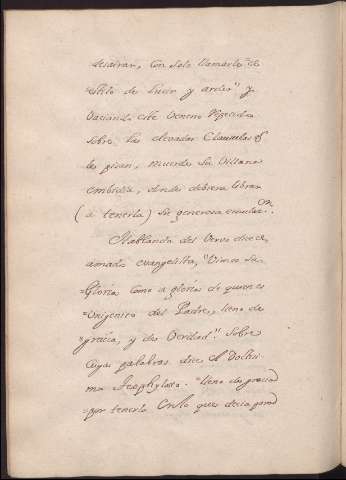 desairar, con solo llamarlo "de
"estilo de lucir y arder" y
vaciando este veneno
sobre las elevadas Clausulas q̃
les pisan, muerde su villana
embidia, donde debiera librar
(á tenerla) su generosa emulaⁿ.
Hablando del Vervo dice el
amado evangelista, "Vimos su
"Gloria como a gloria de quien es
"Unigenito del Padre, lleno de
"gracia, y de Verdad." Sobre
cuyas palabras dice el Doctisi-
mo Teophylato. "lleno de gracia
"por tenerla Cristo que decia